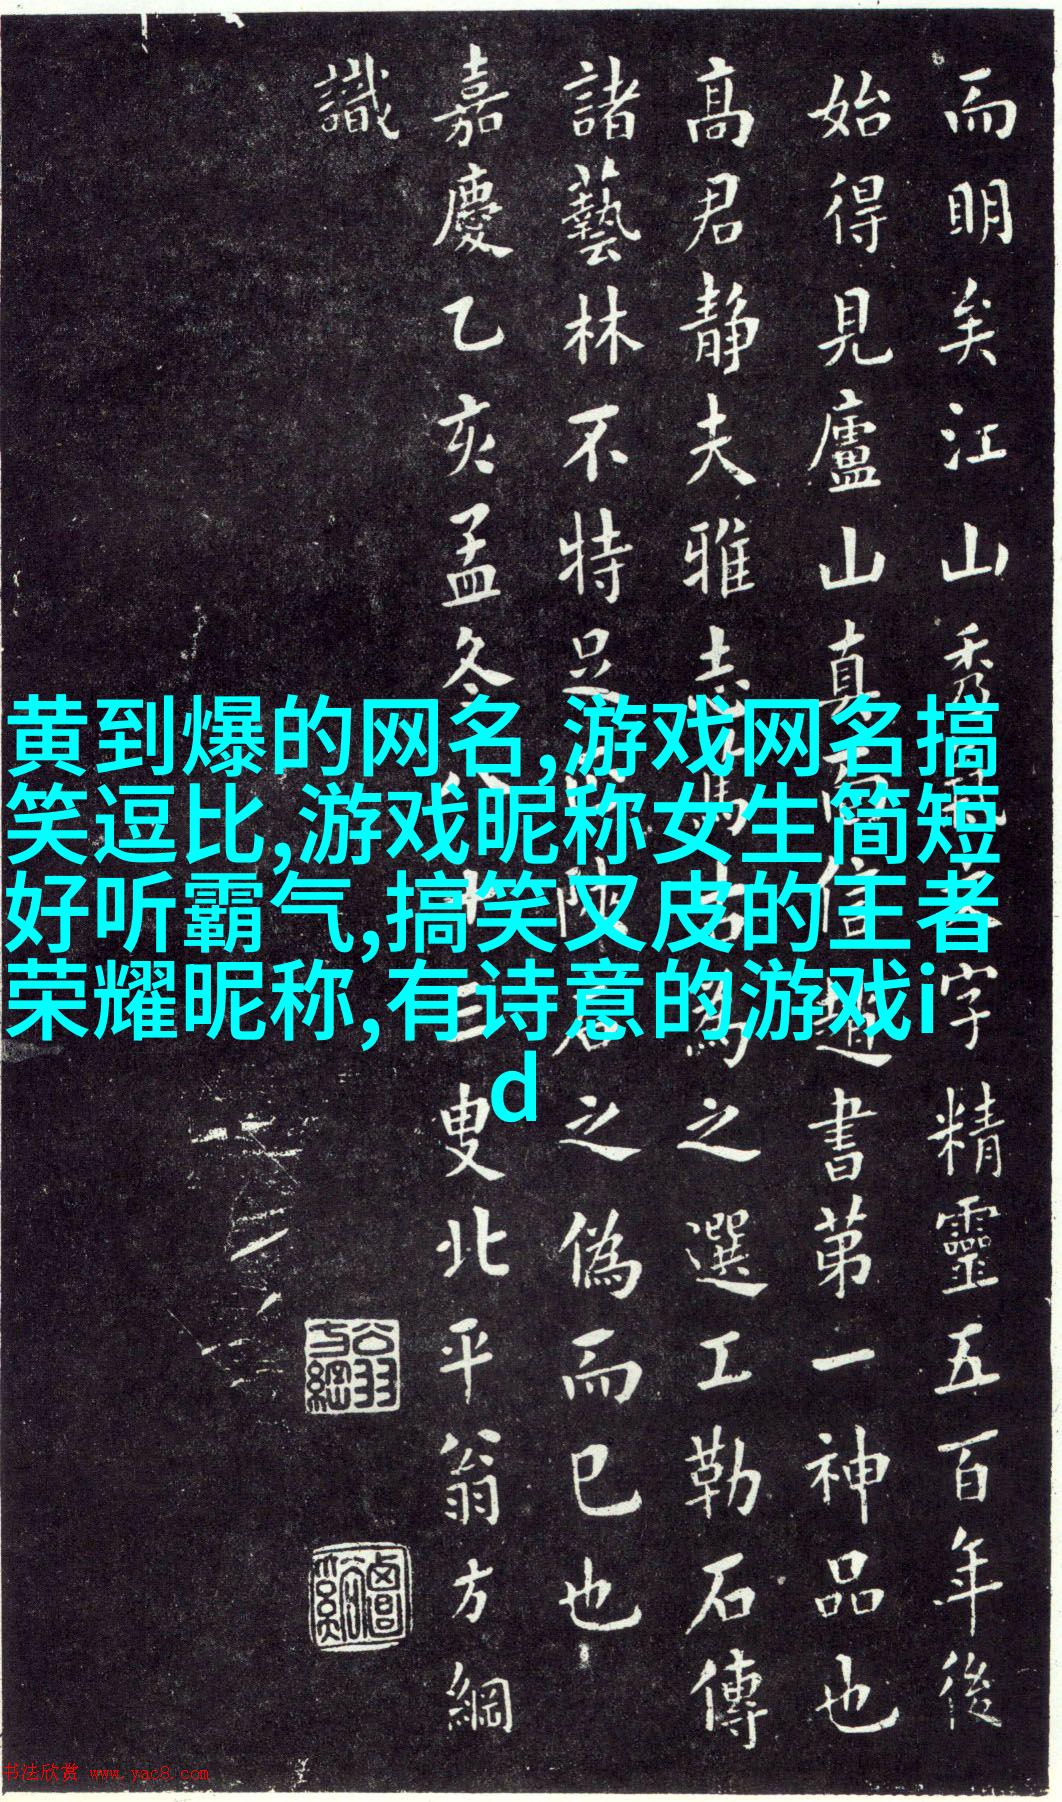 而明矣江山秀字精靈五百年後
始得見廬山真信書第一神品也
高君靜夫雅志為之選工勒石傳
諸藝林不特足石之偽而已也
嘉慶乙亥孟冬八十三叟北平翁方綱
識
翁方綱
黄到爆的网名,游戏网名搞
笑逗比,游戏昵称女生简短
好听霸气,搞笑又皮的王者
荣耀昵称,有诗意的游戏i
d
书法欣赏 www.yac8.com